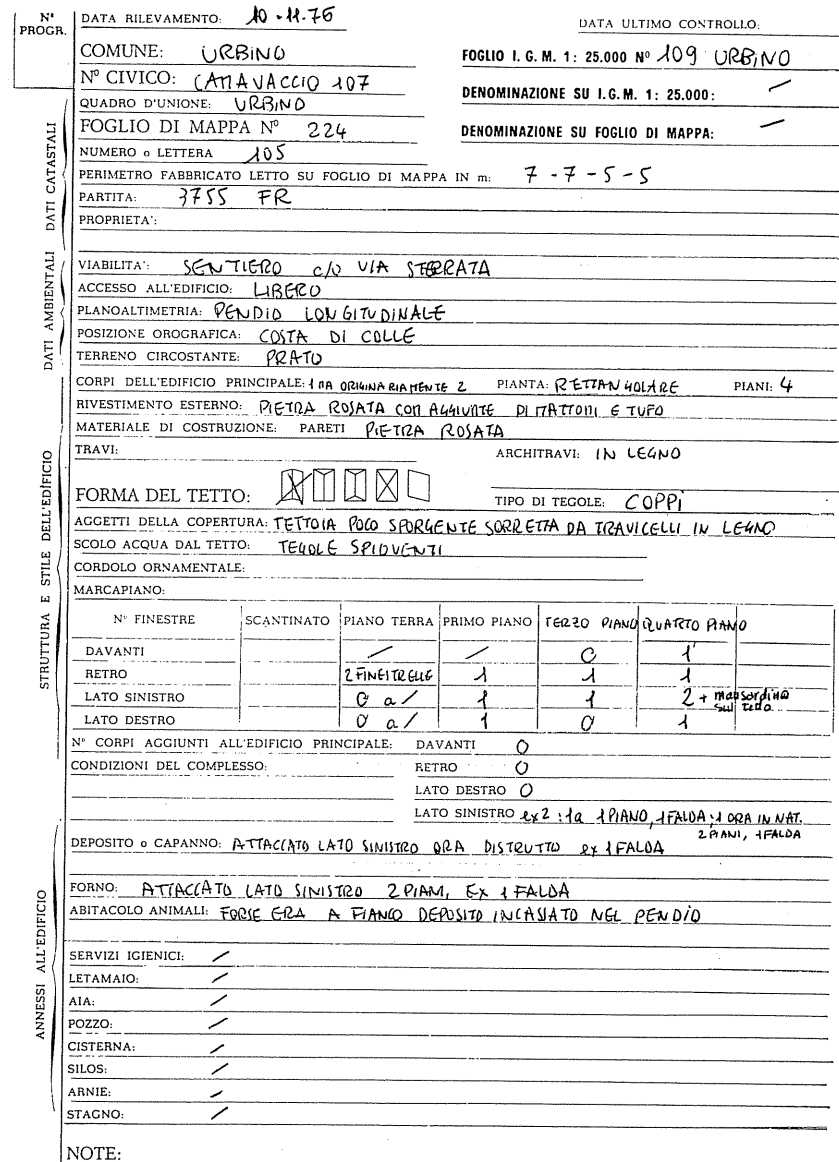 N° PROGR.
DATA RILEVAMENTO: 10-11-76
DATA ULTIMO CONTROLLO:
COMUNE: URBINO
FOGLIO I. G. M. 1: 25.000 N° 109 URBINO
N° CIVICO: CANAVACCIO 107
DENOMINAZIONE SU I.G.M. 1: 25.000: /
QUADRO D'UNIONE: URBINO
FOGLIO DI MAPPA N° 224
DENOMINAZIONE SU FOGLIO DI MAPPA: /
NUMERO o LETTERA 105
PERIMETRO FABBRICATO LETTO SU FOGLIO DI MAPPA IN m: 7-7-5-5
PARTITA: 3755 FR
PROPRIETA':
DATI CATASTALI
VIABILITA': SENTIERO c/o VIA STERRATA
ACCESSO ALL'EDIFICIO: LIBERO
PLANOALTIMETRIA: PENDIO LONGITUDINALE
POSIZIONE OROGRAFICA: COSTA DI COLLE
TERRENO CIRCOSTANTE: PRATO
DATI AMBIENTALI
CORPI DELL'EDIFICIO PRINCIPALE: 1 MA ORIGINARIAMENTE 2 PIANTA: RETTANGOLARE PIANI: 4
RIVESTIMENTO ESTERNO: PIETRA ROSATA CON AGGIUNTE DI MATTONI E TUFO
MATERIALE DI COSTRUZIONE: PARETI PIETRA ROSATA
TRAVI: ARCHITRAVI: IN LEGNO
FORMA DEL TETTO: TIPO DI TEGOLE: COPPI
AGGETTI DELLA COPERTURA: TETTOIA POCO SPORGENTE SORRETTA DA TRAVICELLI IN LEGNO
SCOLO ACQUA DAL TETTO: TEGOLE SPIOVENTI
CORDOLO ORNAMENTALE:
MARCAPIANO:
N° FINESTRE SCANTINATO PIANO TERRA PRIMO PIANO TERZO PIANO QUARTO PIANO
DAVANTI / / 0 1
RETRO 2 FINESTRELLE 1 1 1
LATO SINISTRO 0 a/ 1 1 2 + mansardina sul tetto
LATO DESTRO 0 a/ 1 0 1
STRUTTURA E STILE DELL'EDIFICIO
N° CORPI AGGIUNTI ALL'EDIFICIO PRINCIPALE: DAVANTI 0
CONDIZIONI DEL COMPLESSO: RETRO 0
LATO DESTRO 0
LATO SINISTRO ex 2: 1a 1 PIANO, 1 FALDA; 1 ORA IN MAT.
2 PIANI, 1 FALDA
DEPOSITO o CAPANNO: ATTACCATO LATO SINISTRO ORA DISTRUTTO ex 1 FALDA
FORNO: ATTACCATO LATO SINISTRO 2 PIANI, EX 1 FALDA
ABITACOLO ANIMALI: FORSE ERA A FIANCO DEPOSITO INCASSATO NEL PENDIO
SERVIZI IGIENICI: /
LETAMAIO: /
AIA: /
POZZO: /
CISTERNA: /
SILOS: /
ARNIE: /
STAGNO: /
ANNESSI ALL'EDIFICIO
NOTE: